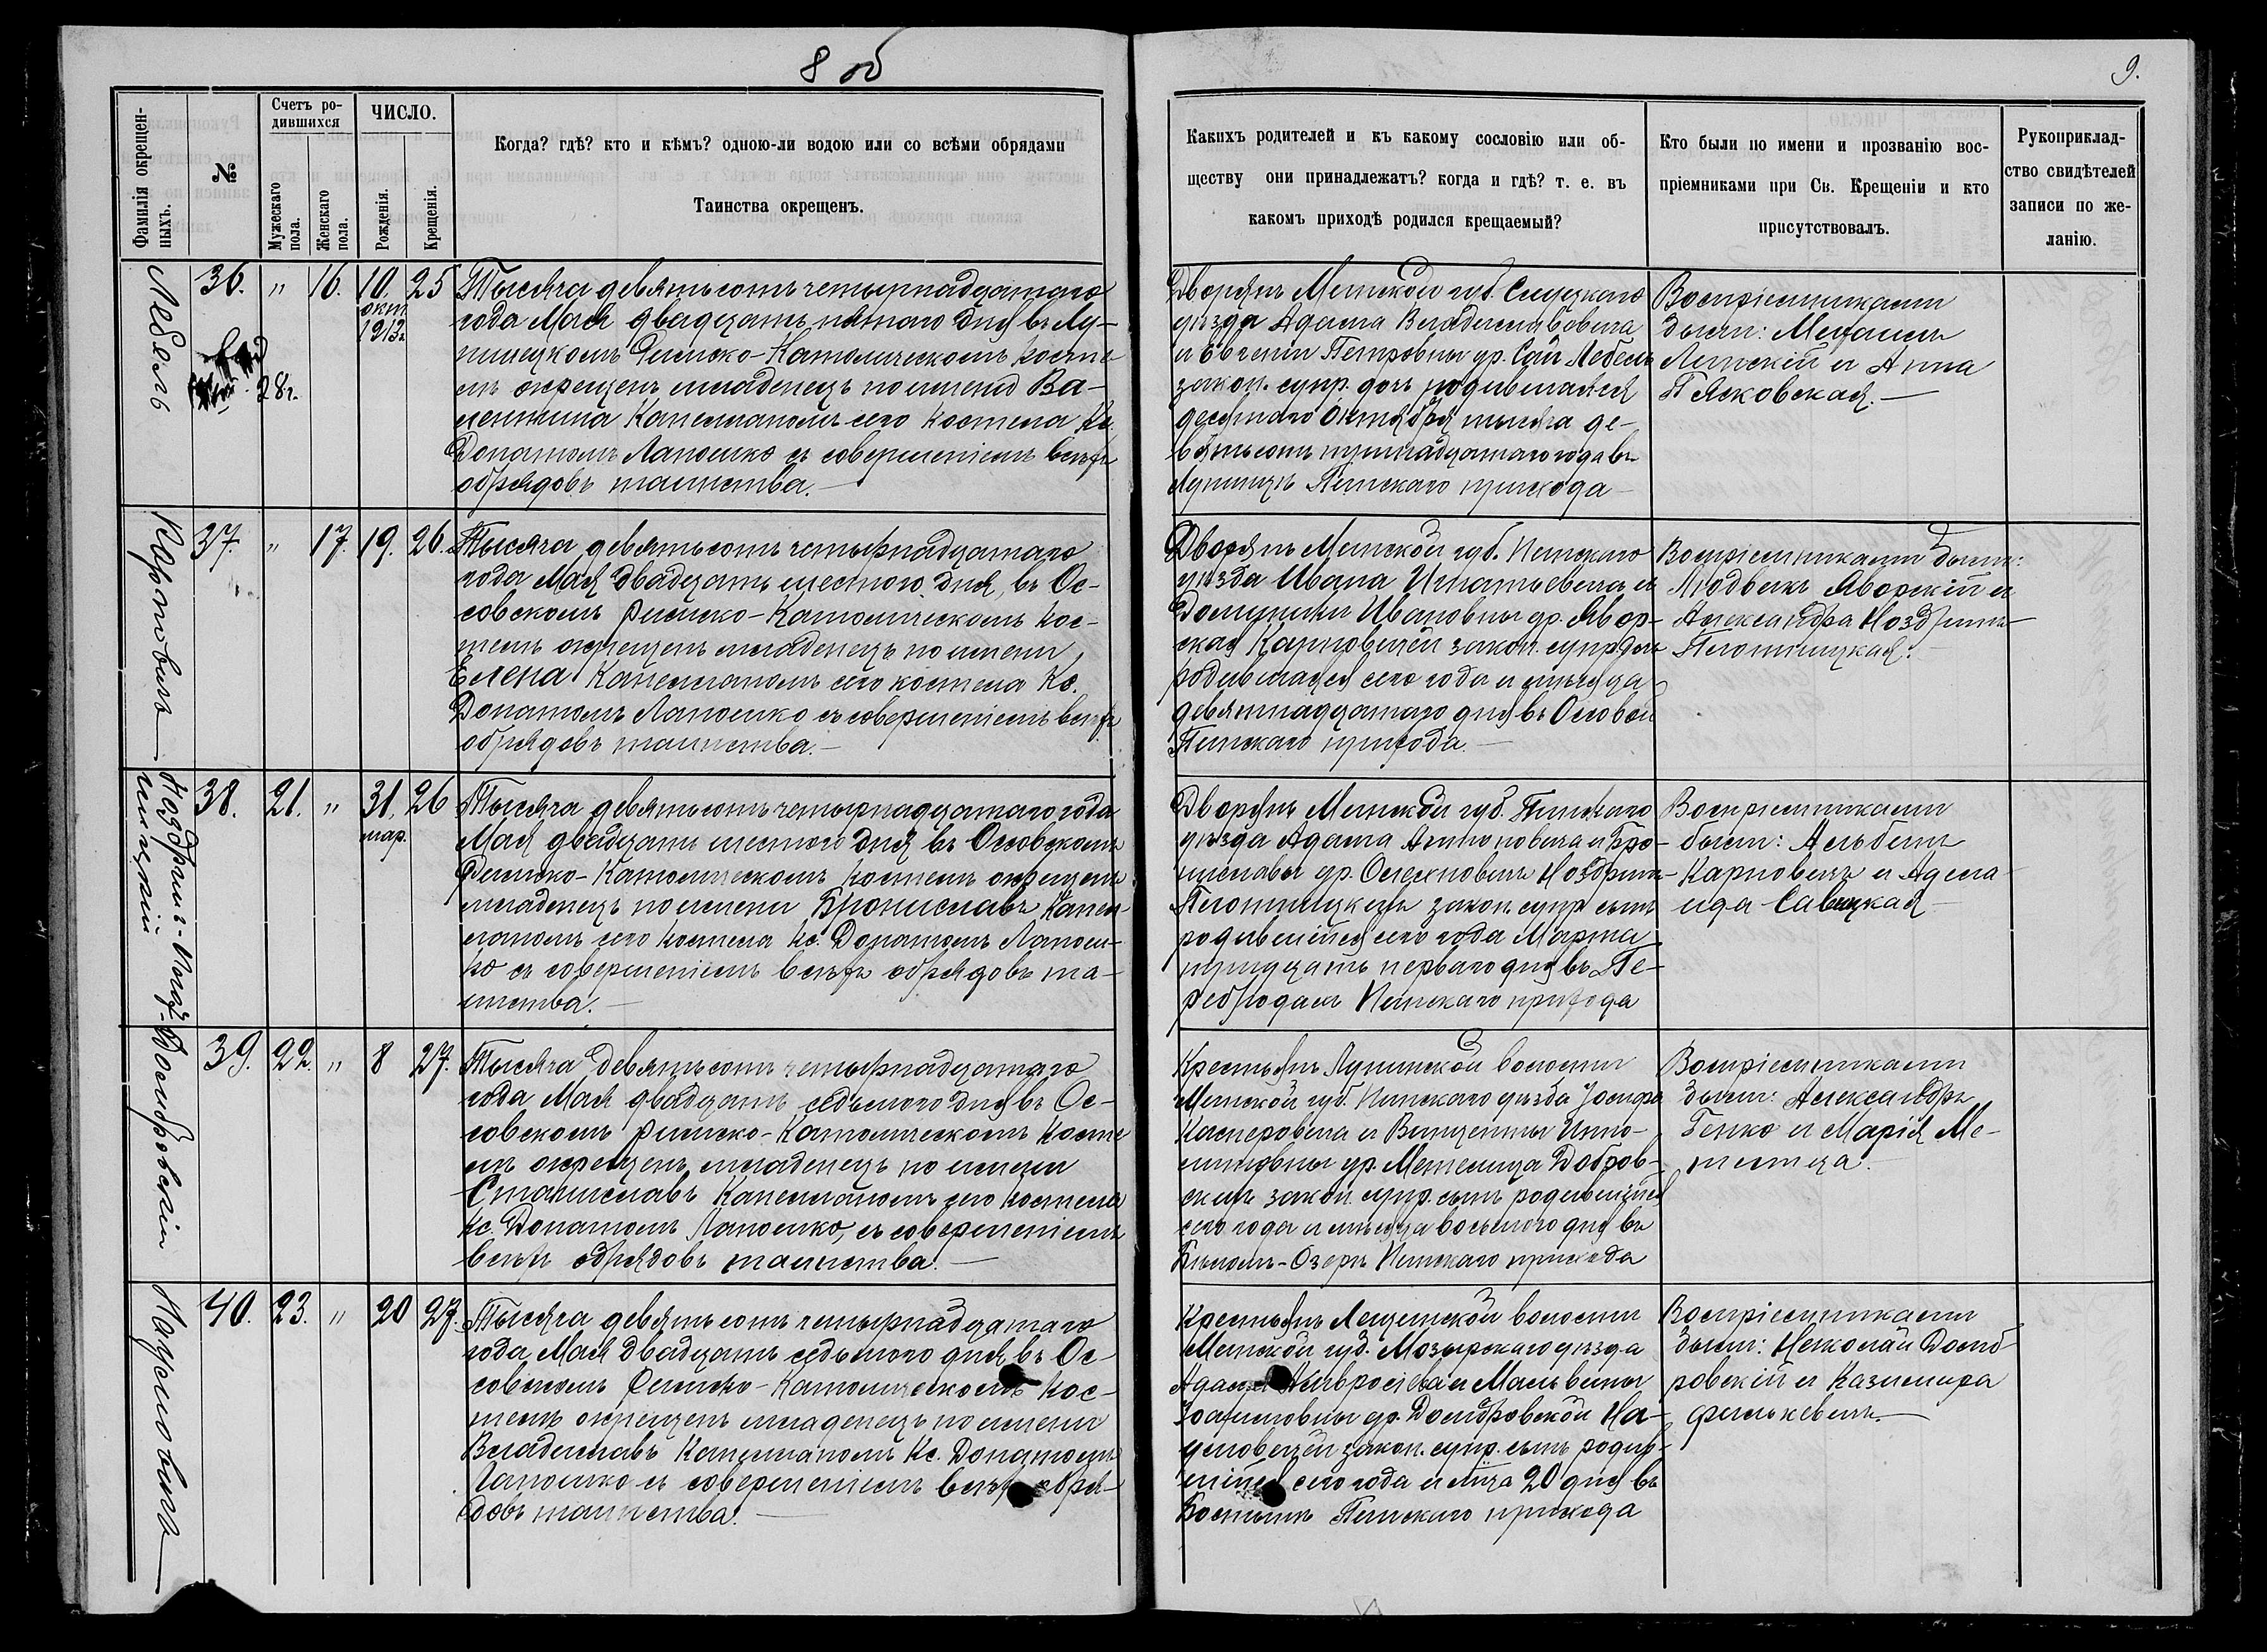 8 об
9.
Фамилія окрещен-
ныхъ.
№
Счетъ ро-
дившихся
Мужескаго
пола.
Женскаго
пола.
ЧИСЛО.
Рожденія.
Крещенія.
Когда? гдѣ? кто и кѣмъ? одною-ли водою или со всѣми обрядами
Таинства окрещенъ.
Какихъ родителей и къ какому сословію или об-
ществу они принадлежатъ? когда и гдѣ? т. е. въ
какомъ приходѣ родился крещаемый?
Кто были по имени и прозванію вос-
пріемниками при Св. Крещеніи и кто
присутствовалъ.
Рукоприклад-
ство свидѣтелей
записи по же-
ланію.
Лебель
36. " 16. 10. 25
окт
1913г.
28г.
Тысяча девятьсотъ четырнадцатаго
года Мая двадцать пятаго дня въ Лу-
нинецкомъ Римско-Католическомъ косте
лѣ окрещенъ младенецъ по имени Ва-
лентина Капелланомъ сего костела Кс.
Донатомъ Лапошко съ совершеніемъ всѣхъ
обрядовъ таинства.—
Дворянъ Минской губ. Слуцкаго
уѣзда Адама Владиславовича
и Евгеніи Петровны ур. Лебель
закон. супр. дочь родившаяся
десятаго Октября тысяча де-
вятьсотъ тринадцатаго года въ
Лунинцѣ Пинскаго прихода—
Воспріемниками
были:
и Анна
Карповичъ—
37. " 17. 19. 26.
Тысяча девятьсотъ четырнадцатаго
года Мая двадцать шестого дня, въ Ос-
совскомъ Римско-Католическомъ кос-
телѣ окрещенъ младенецъ по имени
Елена Капелланомъ сего костела Кс.
Донатомъ Лапошко съ совершеніемъ всѣхъ
обрядовъ таинства.—
Дворянъ Минской губ. Пинскаго
уѣзда Ивана Игнатьевича и
Ивановны ур. Явор-
ская Карповичей закон. супр дочь
родившаяся сего года и мѣсяца
девятнадцатаго дня въ Оссовой
Пинскаго прихода.—
Воспріемниками были:
Людвикъ Яворскій и
Александра Ноздринъ-
Плотницкая.—
Ноздринъ-Плот-
ницкій
38. 21. " 31. 26
мар.
Тысяча девятьсотъ четырнадцатаго года
Мая двадцать шестого дня въ Оссовскомъ
Римско-Католическомъ костелѣ окрещенъ
младенецъ по имени Брониславъ Капел-
ланомъ сего костела Кс. Донатомъ Лапош-
ко съ совершеніемъ всѣхъ обрядовъ та-
инства.—
Дворянъ Минской губ. Пинскаго
уѣзда Адама Антоновича и Бро-
ниславы ур. Олехновичъ Ноздринъ-
Плотницкихъ закон. супр сынъ
родившійся сего года Марта
тридцать перваго дня въ Пе-
ребродахъ Пинскаго прихода
Воспріемниками
были: Альбинъ
Карповичъ и Аделa
ида Савицкая—
Домбровскій
39. 22. " 8 27.
Тысяча девятьсотъ четырнадцатаго
года Мая двадцать седьмого дня въ Ос-
совскомъ Римско-Католическомъ косте
лѣ окрещенъ младенецъ по имени
Станиславъ Капелланомъ сего костела
Кс. Донатомъ Лапошко, съ совершеніемъ
всѣхъ обрядовъ таинства.—
Крестьянъ Лунинской волости
Минской губ. Пинскаго уѣзда Іосифа
Касперовича и Винценты Иппо-
литовны ур. Метелица Домбров-
скихъ закон. супр. сынъ родившійся
сего года и мѣсяца восьмого дня въ
Бѣломъ-Озерѣ Пинскаго прихода
Воспріемниками
были: Александръ
Генко и Марія Ме-
телица.—
Нацловичъ—
40. 23. " 20 27.
Тысяча девятьсотъ четырнадцатаго
года Мая двадцать седьмого дня въ Ос-
совскомъ Римско-Католическомъ кос-
телѣ окрещенъ младенецъ по имени
Владиславъ Капелланомъ Кс. Донатомъ
Лапошко съ совершеніемъ всѣхъ обря-
довъ таинства.—
Крестьянъ волости
Минской губ. Мозырскаго уѣзда
Адама и Мальвины
ур. Домбровской На-
цловичей закон. супр. сынъ родив-
шійся сего года и м-ца 20 дня въ
Пинскаго прихода
Воспріемниками
были: Николай Домб
ровскій и Казимира
—